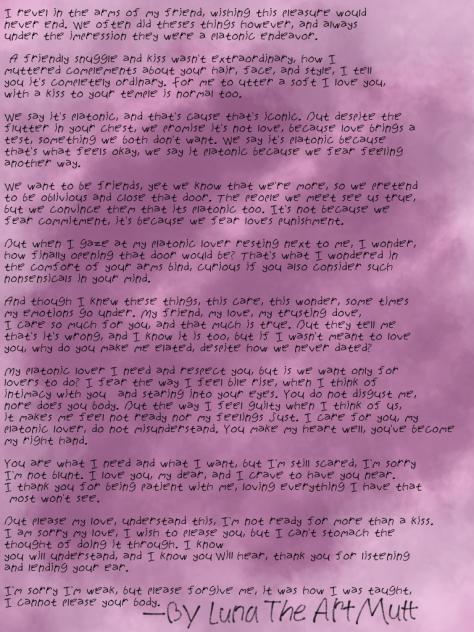 I revel in the arms of my friend, wishing this pleasure would
never end. We often did theses things however, and always
under the impression they were a platonic endeavor.
A friendly snuggle and kiss wasn't extraordinary, how I
muttered complements about your hair, face, and style, I tell
you it's completely ordinary. For me to utter a soft I love you,
with a kiss to your temple is normal too.
We say it's platonic, and that's cause that's iconic. But despite the
flutter in your chest, we promise it's not love, because love brings a
test, something we both don't want. We say it's platonic because
that's what feels okay, we say it platonic because we fear feeling
another way.
We want to be friends, yet we know that we're more, so we pretend
to be oblivious and close that door. The people we meet see us true,
but we convince them that its platonic too. It's not because we
fear commitment, it's because we fear loves punishment.
But when I gaze at my platonic lover resting next to me, I wonder,
how finally opening that door would be? That's what I wondered in
the comfort of your arms bind, curious if you also consider such
nonsensicals in your mind.
And though I knew these things, this care, this wonder, some times
my emotions go under. My friend, my love, my trusting dove,
I care so much for you, and that much is true. But they tell me
that's it's wrong, and I know it is too, but if I wasn't meant to love
you, why do you make me elated, despite how we never dated?
My platonic lover I need and respect you, but is we want only for
lovers to do? I fear the way I feel bile rise, when I think of
intimacy with you and staring into your eyes. You do not disgust me,
nore does you body. But the way I feel guilty when I think of us,
it makes me feel not ready nor my feelings just. I care for you, my
platonic lover, do not misunderstand. You make my heart well, you've become
my right hand.
You are what I need and what I want, but I'm still scared, I'm sorry
I'm not blunt. I love you, my dear, and I crave to have you near.
I thank you for being patient with me, loving everything I have that
most won't see.
But please my love, understand this, I'm not ready for more than a kiss.
I am sorry my love, I wish to please you, but I can't stomach the
thought of doing it through. I know
you will understand, and I know you Will hear, thank you for listening
and lending your ear.
I'm sorry I'm weak, but please forgive me, it was how I was taught,
I cannot please your body.
—By Luna The Art Mutt